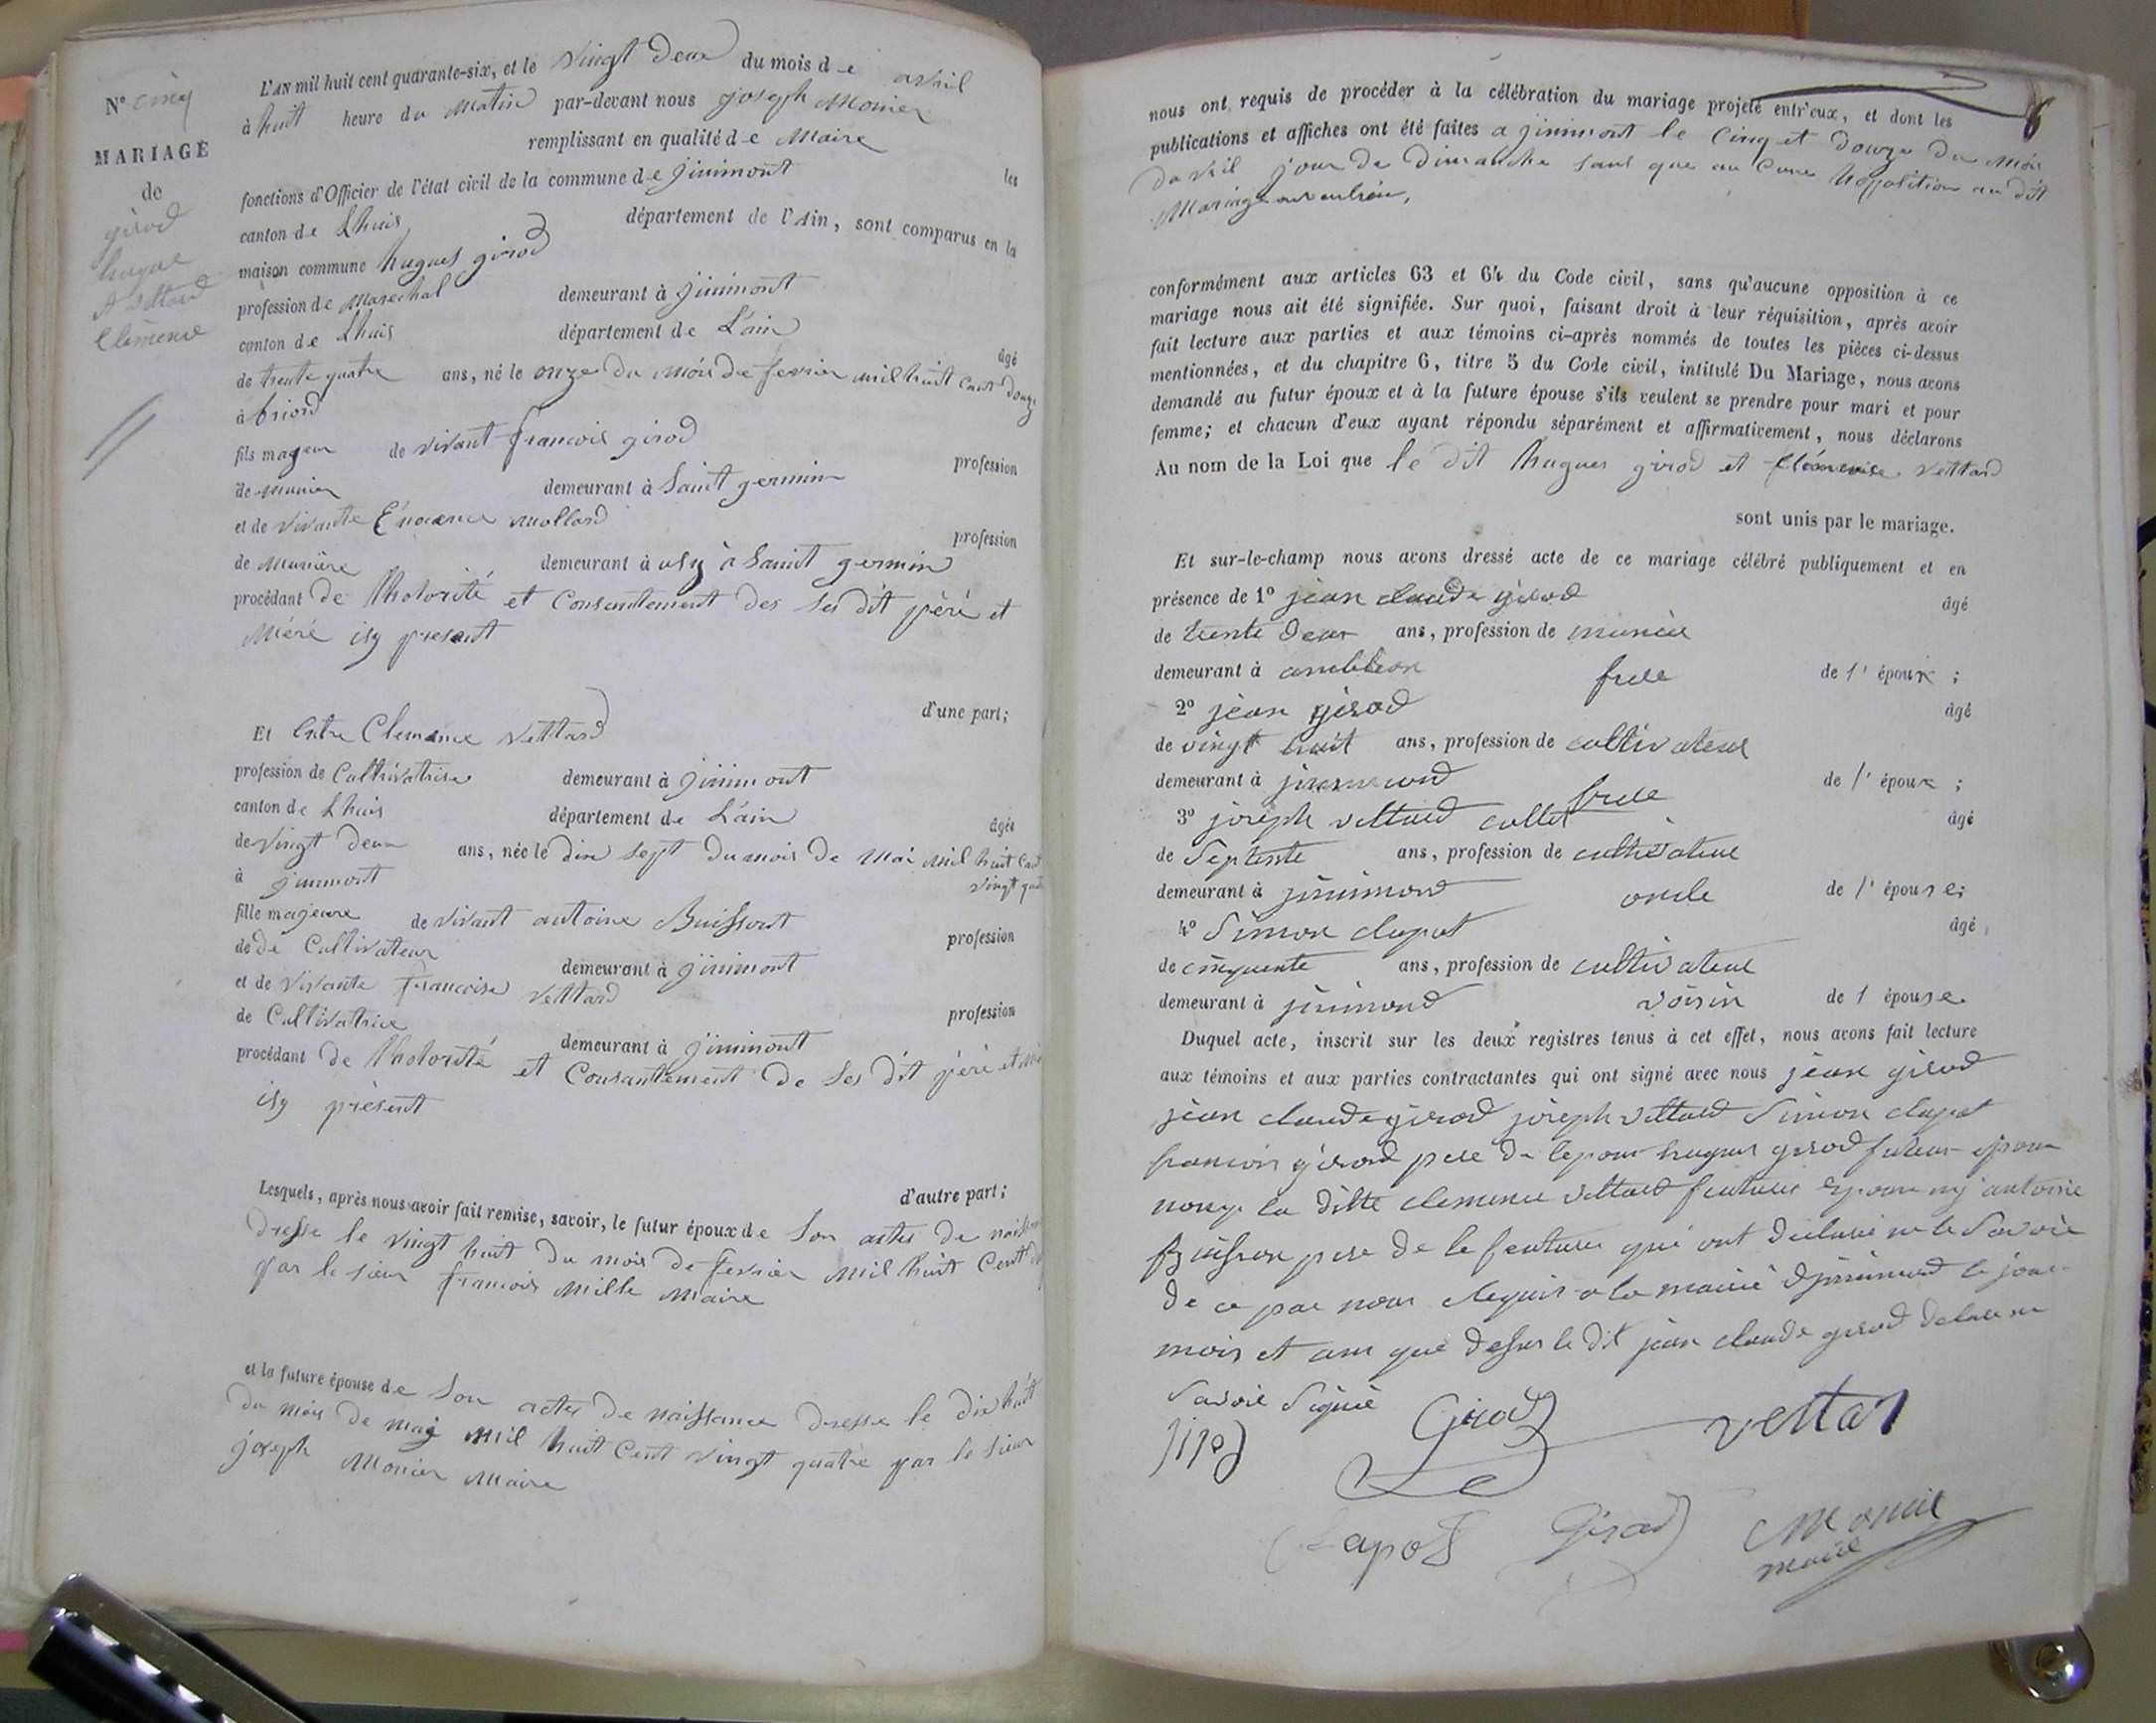 N° cinq
MARIAGE
de
girod
hugue
et vettard
Clémence
L'AN mil huit cent quarante-six, et le vingt deux du mois de avril
à huit heure du matin par-devant nous joseph Monier
remplissant en qualité de Maire les
fonctions d'Officier de l'état civil de la commune de jinimont
canton de Lhuis département de l'Ain, sont comparus en la
maison commune hugues girod
profession de marechal demeurant à jinimont
canton de Lhuis département de L'ain âgé
de trente quatre ans, né le onze du mois de fevrier mil huit cent douze
à briord
fils mageur de vivant francois girod profession
de munier demeurant à Saint germin
et de vivante mollard profession
de Munière demeurant à à Saint germin
procédant de lhotorité et Consentement des ses dit pèré et
Méré isy present
d'une part;
Et Entre Clemence vettard
profession de Cultivatrise demeurant à jinimont
canton de Lhuis département de L'ain âgée
de vingt deux ans, née le dix sept du mois de Mai mil huit Cent
vingt quatre
à jinimont
fille majeure de vivant antoine Buissont profession
de de Cultivateur demeurant à jinimont
et de vivante francoise vettard profession
de Cultivatrice demeurant à jinimont
procédant de lhotorité et Consantement de ses dit péré et
isy présent
d'autre part;
Lesquels, après nous avoir fait remise, savoir, le futur époux de Son actes de naissance
dresse le vingt huit du mois de fevrier mil huit Cent
par le sieur francois Mille Maire
et la future épouse de Son actes de naissance dresse le dix huit
du mois de mai mil huit Cent vingt quatre par le sieur
joseph Monier Maire
nous ont requis de procéder à la célébration du mariage projeté entr'eux, et dont les
publications et affiches ont été faites a jinimont le cinq et douze du mois
davril jour de dimanche sans que au cune hopposition au dit
Mariage
conformément aux articles 63 et 64 du Code civil, sans qu'aucune opposition à ce
mariage nous ait été signifiée. Sur quoi, faisant droit à leur réquisition, après avoir
fait lecture aux parties et aux témoins ci-après nommés de toutes les pièces ci-dessus
mentionnées, et du chapitre 6, titre 5 du Code civil, intitulé Du Mariage, nous avons
demandé au futur époux et à la future épouse s'ils veulent se prendre pour mari et pour
femme; et chacun d'eux ayant répondu séparément et affirmativement, nous déclarons
Au nom de la Loi que le dit hugues girod et Clémence vettard
sont unis par le mariage.
Et sur-le-champ nous avons dressé acte de ce mariage célébré publiquement et en
présence de 1° jean claude girod âgé
de trente deux ans, profession de munier
demeurant à ambleon frere de l'époux ;
2° jean girod âgé
de vingt huit ans, profession de cultivateur
demeurant à frere de l'époux ;
3° joseph vettard collet âgé
de Septente ans, profession de cultivateur
demeurant à jinimond oncle de l'épouse;
4° Simon clapot âgé
de cinquente ans, profession de cultivateur
demeurant à jinimond voisin de l épouse
Duquel acte, inscrit sur les deux registres tenus à cet effet, nous avons fait lecture
aux témoins et aux parties contractantes qui ont signé avec nous jean girod
jean claude girod joseph vettard Simon clapot
francois girod pere de lepoux hugues girod futeur epoux
la ditte clemence vettard futeure antoine
Buisson pere de la futeure qui ont declarée ne le Savoir
de ce par nous a la mairie djinimond le jour
mois et an que desus le dit jean claude girod
Savoir Signié
jirod Girod vettar
Clapot Girod Monier
maire